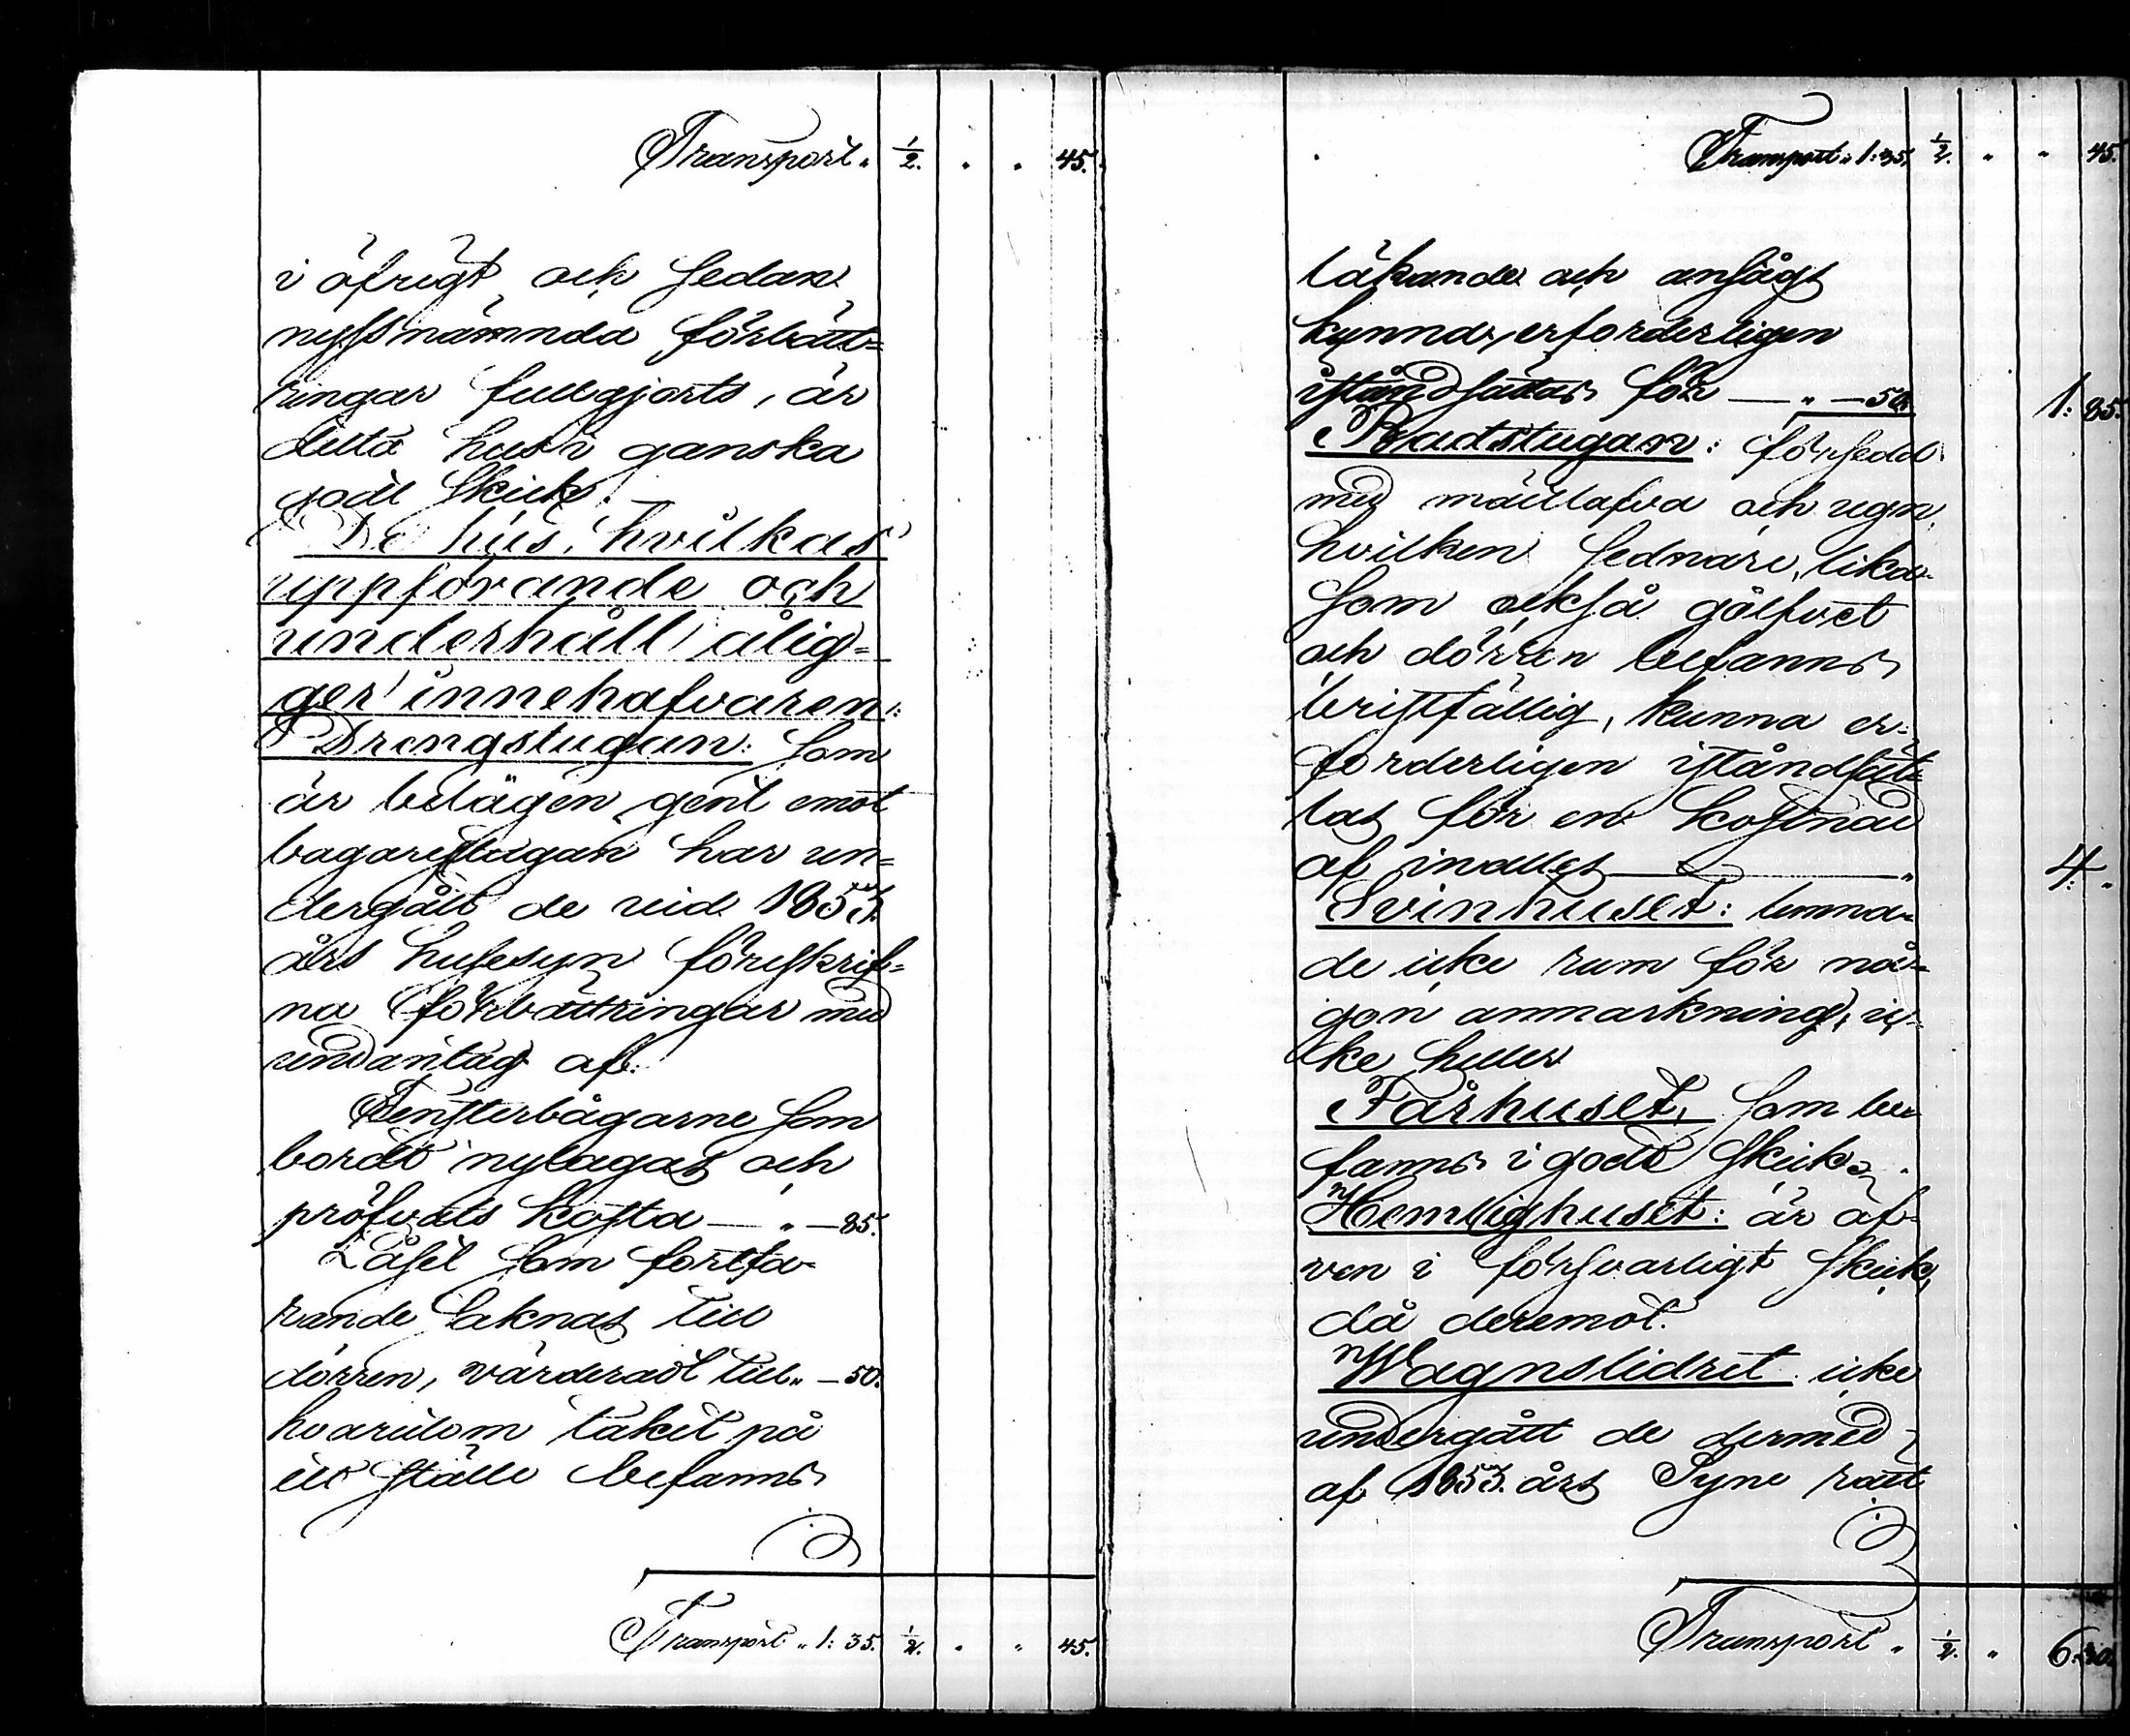 Transport „ ½. „ „ 45.
i öfrigt och sedan
nyssnämnda förbätt=
ringar fullgjorts, är
detta hus i ganska
godt skick. —
De hus, hvilkas
uppförande och
underhåll ålig=
ger innehafvaren:
Drengstugan: som
är belägen gent emot
bagarestugan har un=
dergått de vid 1853
års husesyn föreskrif=
na förbättringar med
undantag af:
Fensterbågarne som
bordt nylagas och
pröfvats kosta — „ — 85.
Låset som fortfa-
rande saknas till
dörren, värderadt till „ — 50.
hvarutom taket på
ett ställe befanns
Transport „ 1: 35. ½. „ „ 45.
Transport „ 1: 35. ½. „ „ 45.
läkande och ansågs
kunna erforderligen
iståndsättas för — „ — 50. 1: 85.
Badstugan: försedd
med mältlafva och ugn,
hvilken sednare, lika-
som också gålfvet
och dörren befanns
bristfällig, kunna er-
forderligen iståndsät=
tas för en kostnad
af inalles — „ 4: „
Svinhuset: lemna-
de icke rum för nå-
gon anmärkning, ic-
ke heller
Fårhuset, som be-
fanns i godt skick.
Hemlighuset: är äf-
ven i försvarligt skick,
då deremot.
Wagnslidret icke
undergått de dermed
af 1853 års Syne rätt
Transport „ ½. „ 6: 30.